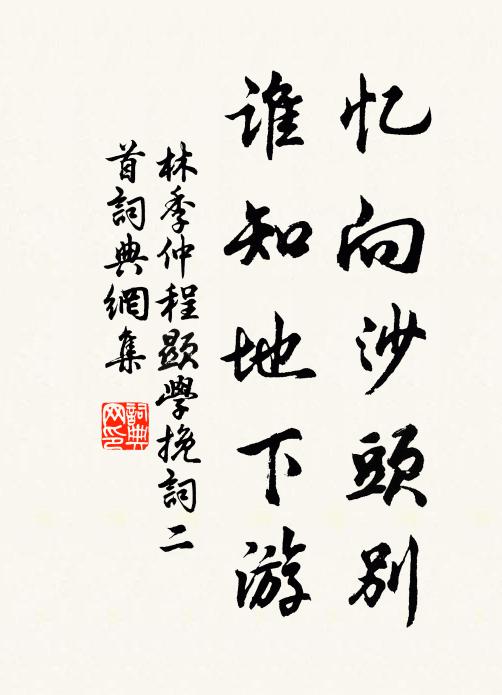 忆向沙頭別
谁知地下游
林季仲程顯學挽詞二
首詞典網集
詞典网印